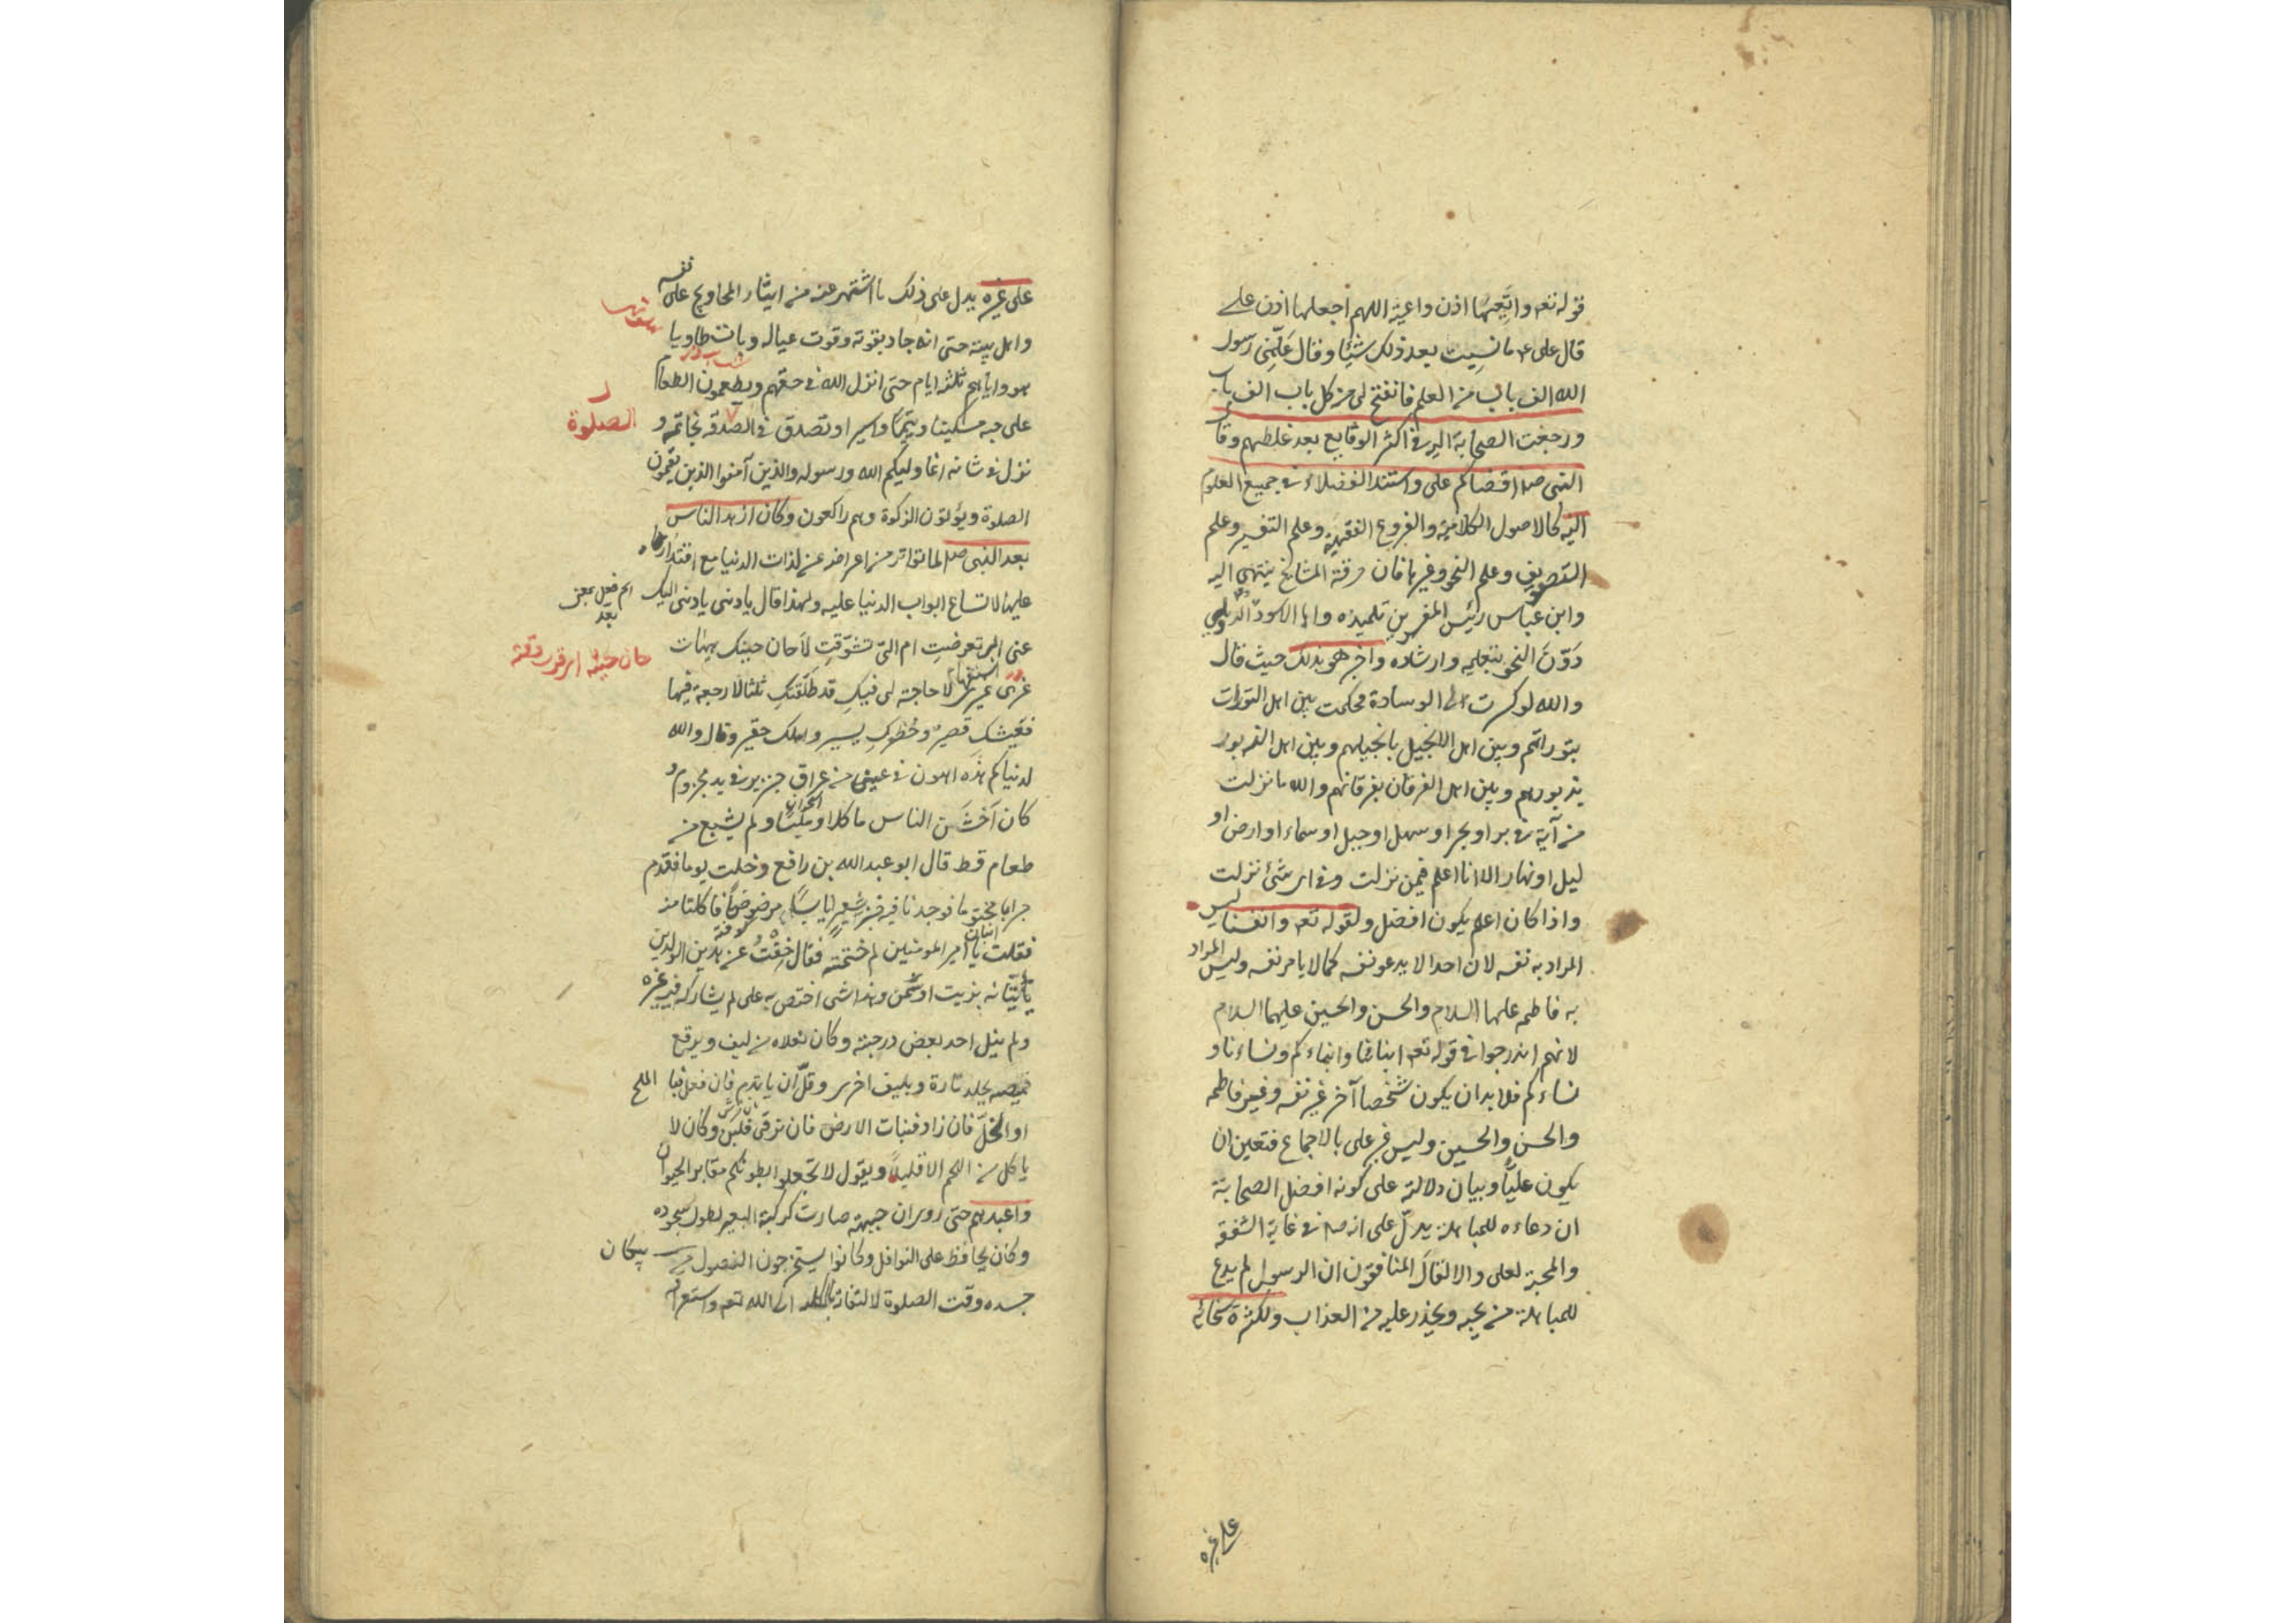 قوله تعه وا تعيها اذن واعية اللهم اجعلها اذن علے
قال علی عم ما نسيت بعد ذلك شيئا وقال علّمنی رسول
الله الف باب من العلم فانفتح لی من كل باب الف باب
ورجعت الصحابة اليه فی اكثر الوقايع بعد غلطهم وقا
النبی صم اقضاكم علی واستند الفضلاء فی جميع العلوم
اليه كالاصول الكلامية والفروع الفقهية وعلم التفسير وعلم
التصوف وعلم النحو وغيرها فان خرقة المشايخ ينتهی اليه
وابن عباس رئيس المفسرين تلميذه و ابا الاسود الدؤلی
دوّن النحو بتعليمه وارشاده واخبر هو بذلك حيث قال
والله لو كسرت الی الوسادة لحكمت بين اهل التورات
بتوراتهم وبين اهل الانجيل بانجيلهم وبين اهل الزبور
بزبورهم وبين اهل الفرقان بفرقانهم والله ما نزلت
من آية فی بر او بحر او سهل او جبل او سماء او ارض او
ليل او نهار الا انا اعلم فيمن نزلت وفی ای شئ نزلت
واذا كان اعلم يكون افضل ولقوله تعه وانفسنا ليس
المراد به نفسه لان احدا لا يدعو نفسه كما لا يامر نفسه وليس المراد
به فاطمه عليها السلام والحسن والحسين عليهما السلام
لانهم اندرجوا فی قوله تعه ابنائنا وابناءكم ونساءنا و
نساءكم فلا بد ان يكون شخصا آخر غير نفسه وغير فاطمه
والحسن والحسين وليس غير علی بالاجماع فتعين ان
يكون عليّا وبيان دلالته علی كونه افضل الصحابة
ان دعاءه للمباهلة يدلّ علی انه صم فی غاية الشفقة
والمحبة لعلی والا لقال المنافقون ان الرسول لم يدع
للمباهلة من يحبه ويحذر عليه من العذاب ولكثرة سخائه
علی غيره
علی غيره يدل علی ذلك ما اشتهر عنه من ايثار المحاويج علی نفسه
واهل بيته حتی انه جاد بقوته وقوت عياله وبات طاويا
هو واياهم ثلثة ايام حتی انزل الله فی حقهم ويطعمون الطعام
علی حبه مسكينا ويتيما واسيرا وتصدق فی الصدقة بخاتمه و
الصلوة
نزل فی شانه انما وليكم الله ورسوله والذين آمنوا الذين يقيمون
الصلوة ويؤتون الزكوة وهم راكعون وكان ازهد الناس
بعد النبی صم لما تواتر من اعراضه عن لذات الدنيا مع اقتداره
عليها لاتساع ابواب الدنيا عليه ولهذا قال يا دنی يا دنی اليك
اسم فعل بمعنی
بعد
عنی ابی تعرضت ام الیّ تشوّقت لا حان حينك هيهات
غری غيری لا حاجة لی فيك قد طلقتك ثلثا لا رجعة فيها
فعيشك قصير وخطرك يسير واملك حقير وقال والله
لدنياكم هذه اهون فی عينی من عراق خنزير فی يد مجذوم و
كان اخشن الناس ماكلا وملبسا ولم يشبع من
طعام قط قال ابو عبد الله بن رافع دخلت يوما فقدم
جرابا مختوما فوجدنا فيه خبز شعير يابسا مرضوضا فاكلنا منه
فقلت يا امير المومنين لم ختمته فقال خفت من هذين الولدين
يأتيانه بزيت او سمن وهذا شی اختص به علی لم يشاركه فيه غيره
ولم ينل احد بعض درجته وكان نعلاه من ليف ويرقع
قميصه بجلد تارة وبليف اخری وقلّ ان ياتدم فان فعل فبا الملح
او الخلّ فان زاد فنبات الارض فان ترقی فلبن وكان لا
ياكل من اللحم الا قليلا ويقول لا تجعلوا بطونكم مقابر الحيوان
واعبدهم حتی روی ان جبهته صارت كركبة البعير لطول سجوده
وكان يحافظ علی النوافل وكانوا يستخرجون النصول من
پيكان
جسده وقت الصلوة لالتفاته الی الله تعه واستغراقه